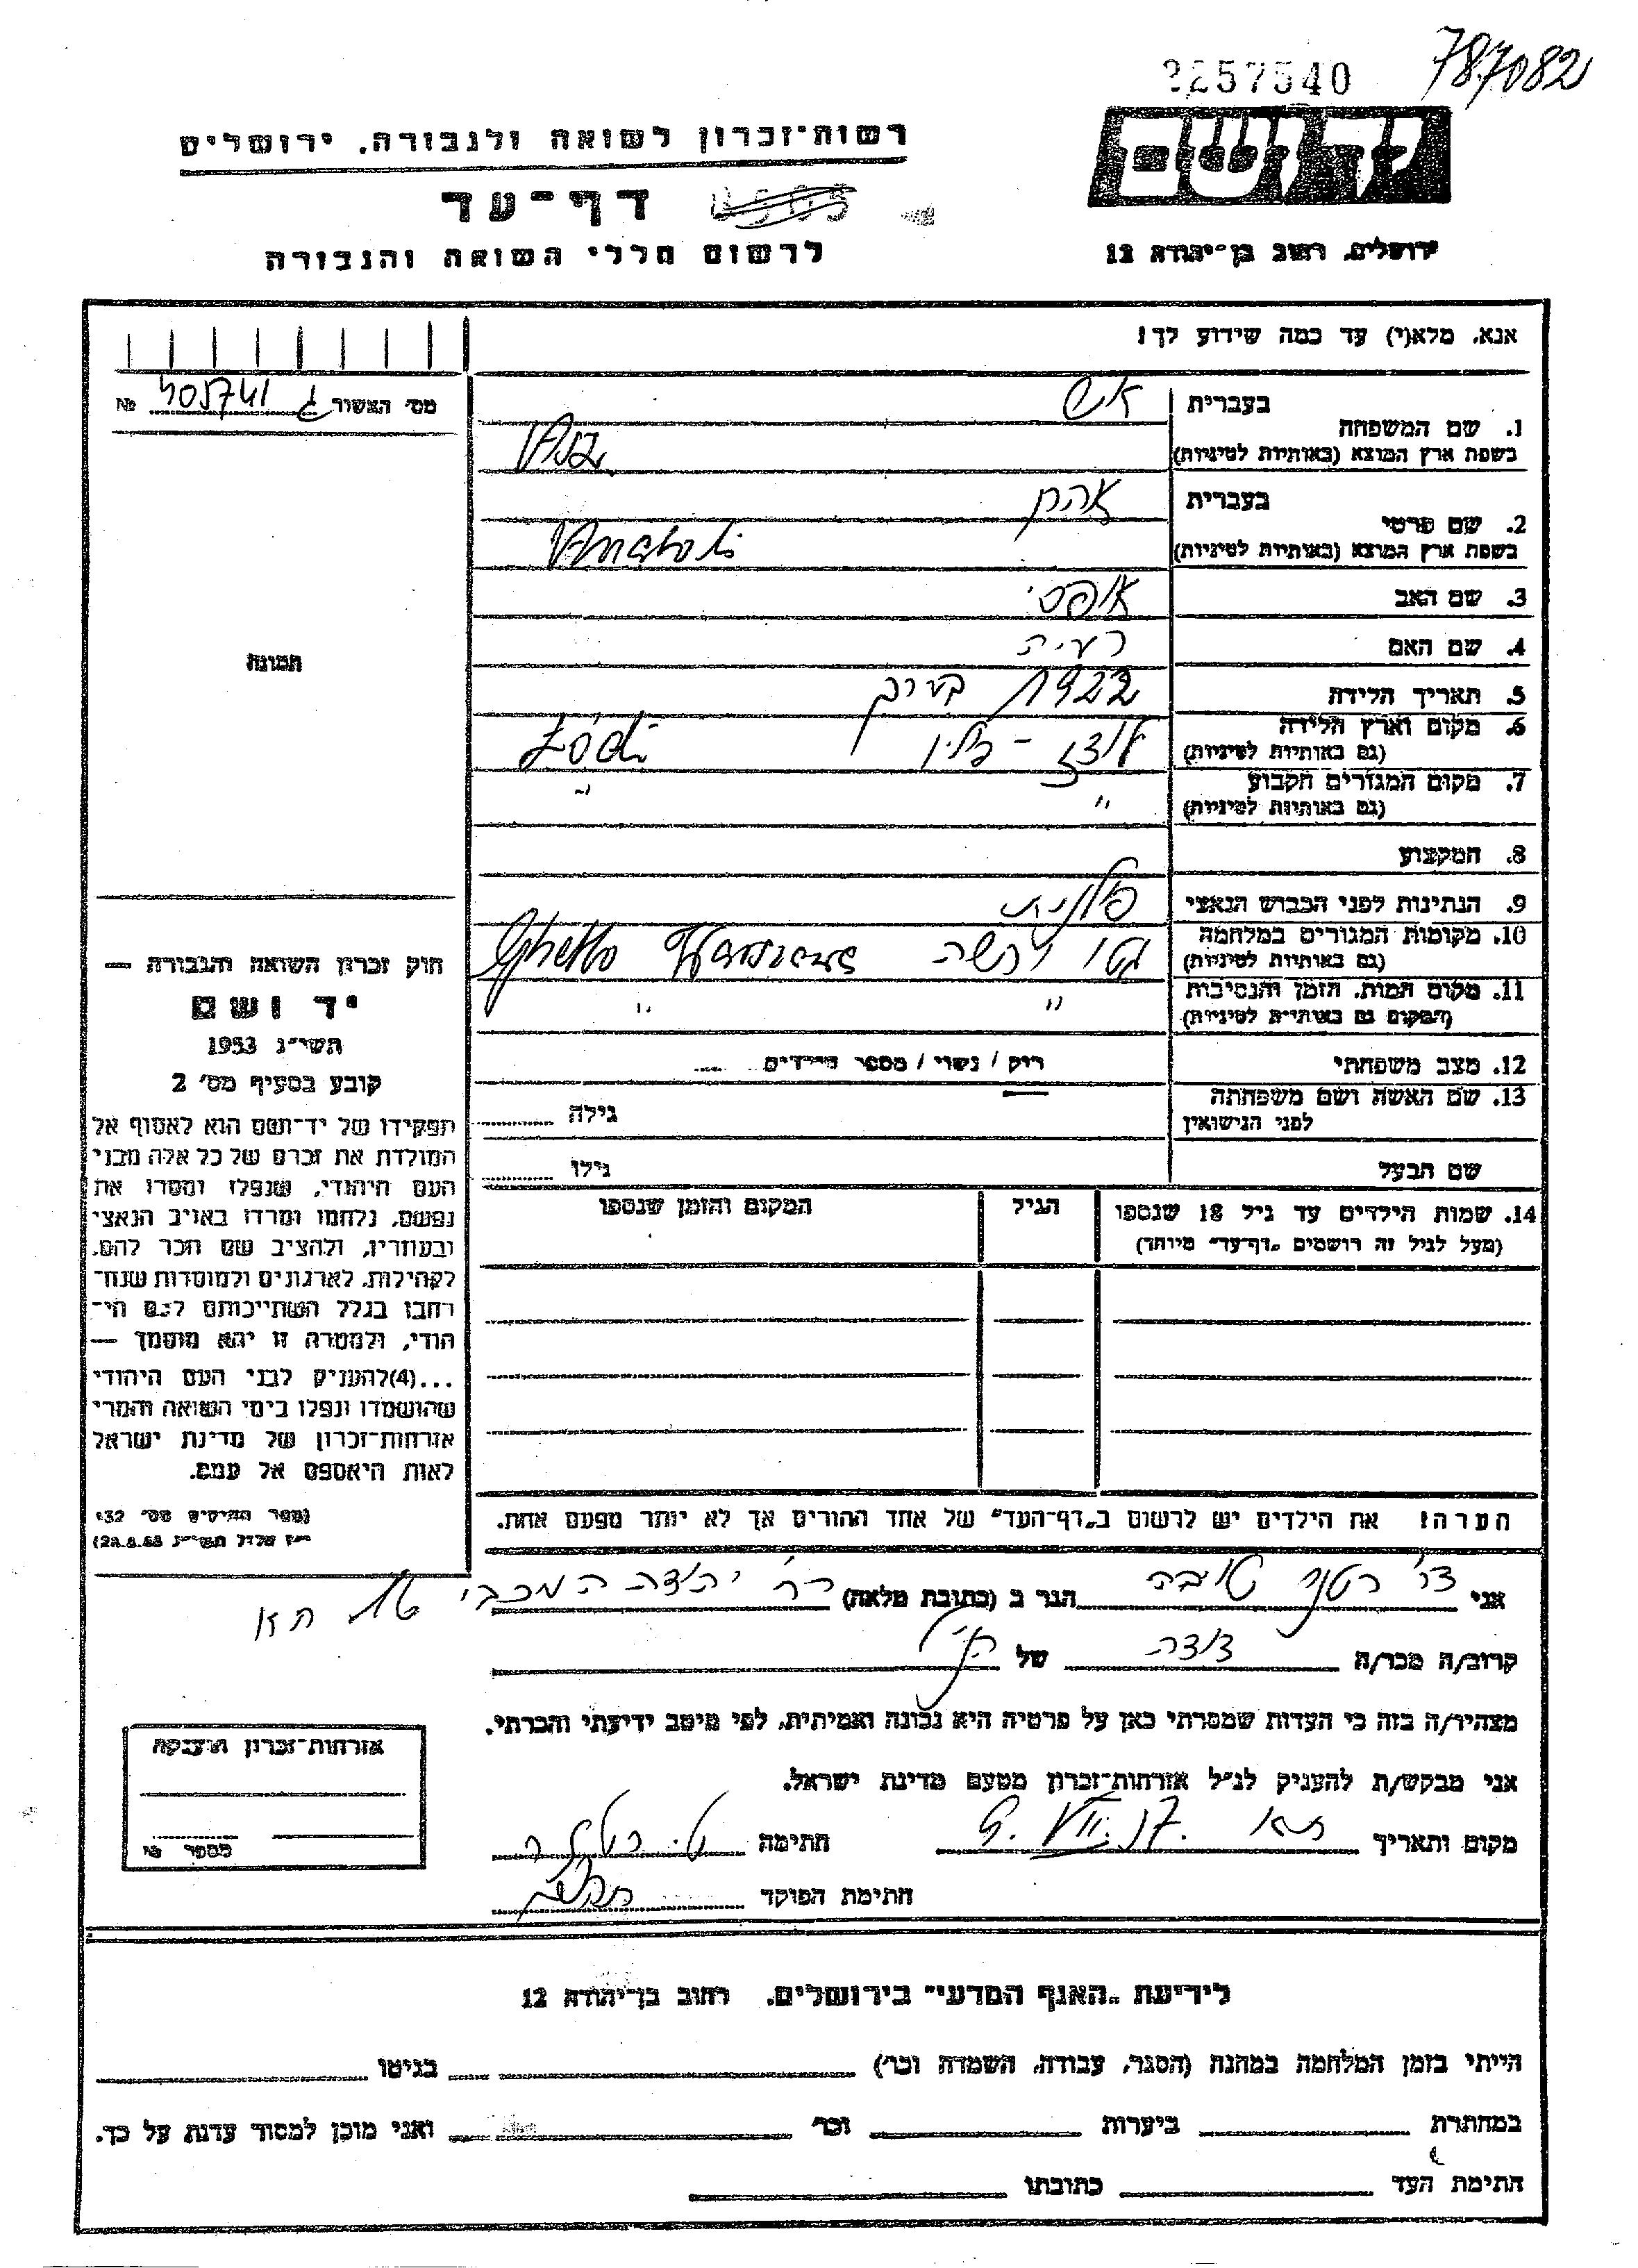 787082
57540
יד ושם
רשות־זכרון לשואה ולגבורה, ירושלים
דף־עד
לרשום חללי השואה והגבורה
ירושלים, רחוב בן־יהודה 12
אנא, מלא(י) עד כמה שידוע לך!
מס׳ האשור ג 405741 №
בעברית אש
1. שם המשפחה
בשפת ארץ המוצא (באותיות לטיניות)
בעברית אהרן
2. שם פרטי
בשפת ארץ המוצא (באותיות לטיניות) Anatoli
3. שם האב
4. שם האם
5. תאריך הלידה 1922 בערך
6. מקום וארץ הלידה לודז - פולין Łódź
(גם באותיות לטיניות)
7. מקום המגורים הקבוע " "
(גם באותיות לטיניות)
8. המקצוע
9. הנתינות לפני הכבוש הנאצי פולנית
10. מקומות המגורים במלחמה גטו ורשה Ghetto Warszawa
(גם באותיות לטיניות)
11. מקום המות, הזמן והנסיבות " "
(המקום גם באותיות לטיניות)
12. מצב משפחתי רוק / נשוי / מספר הילדים
13. שם האשה ושם משפחתה גילה
לפני הנישואין
שם הבעל גילו
14. שמות הילדים עד גיל 18 שנספו הגיל המקום והזמן שנספו
(מעל לגיל זה רושמים „דף־עד״ מיוחד)
תמונה
חוק זכרון השואה והגבורה —
יד ושם
תשי״ג 1953
קובע בסעיף מס׳ 2
תפקידו של יד־ושם הוא לאסוף אל
המולדת את זכרם של כל אלה מבני
העם היהודי, שנפלו ומסרו את
נפשם, נלחמו ומרדו באויב הנאצי
ובעוזריו, ולהציב שם וזכר להם,
לקהילות, לארגונים ולמוסדות שנח־
רבו בגלל השתייכותם לעם הי־
הודי, ולמטרה זו יהא מוסמך —
...(4)להעניק לבני העם היהודי
שהושמדו ונפלו בימי השואה והמרי
אזרחות־זכרון של מדינת ישראל
לאות היאספם אל עמם.
(ספר החוקים מס׳ 132
הערה! את הילדים יש לרשום ב„דף־העד״ של אחד ההורים אך לא יותר מפעם אחת.
אני ד״ר רטנר טובה הגר ב (כתובת מלאה) רח׳ יהודה המכבי
קרוב/ה מכר/ה דודה של הנ״ל
מצהיר/ה בזה כי העדות שמסרתי כאן על פרטיה היא נכונה ואמיתית, לפי מיטב ידיעתי והכרתי.
אני מבקש/ת להעניק לנ״ל אזרחות־זכרון מטעם מדינת ישראל.
מקום ותאריך חתימה
חתימת הפוקד
אזרחות־זכרון הוענקה
מספר
לידיעת „האגף המדעי״ בירושלים, רחוב בן־יהודה 12
הייתי בזמן המלחמה במחנה (הסגר, עבודה, השמדה וכו׳) בגיטו
במחתרת ביערות וכו׳ ואני מוכן למסור עדות על כך.
חתימת העד כתובתו